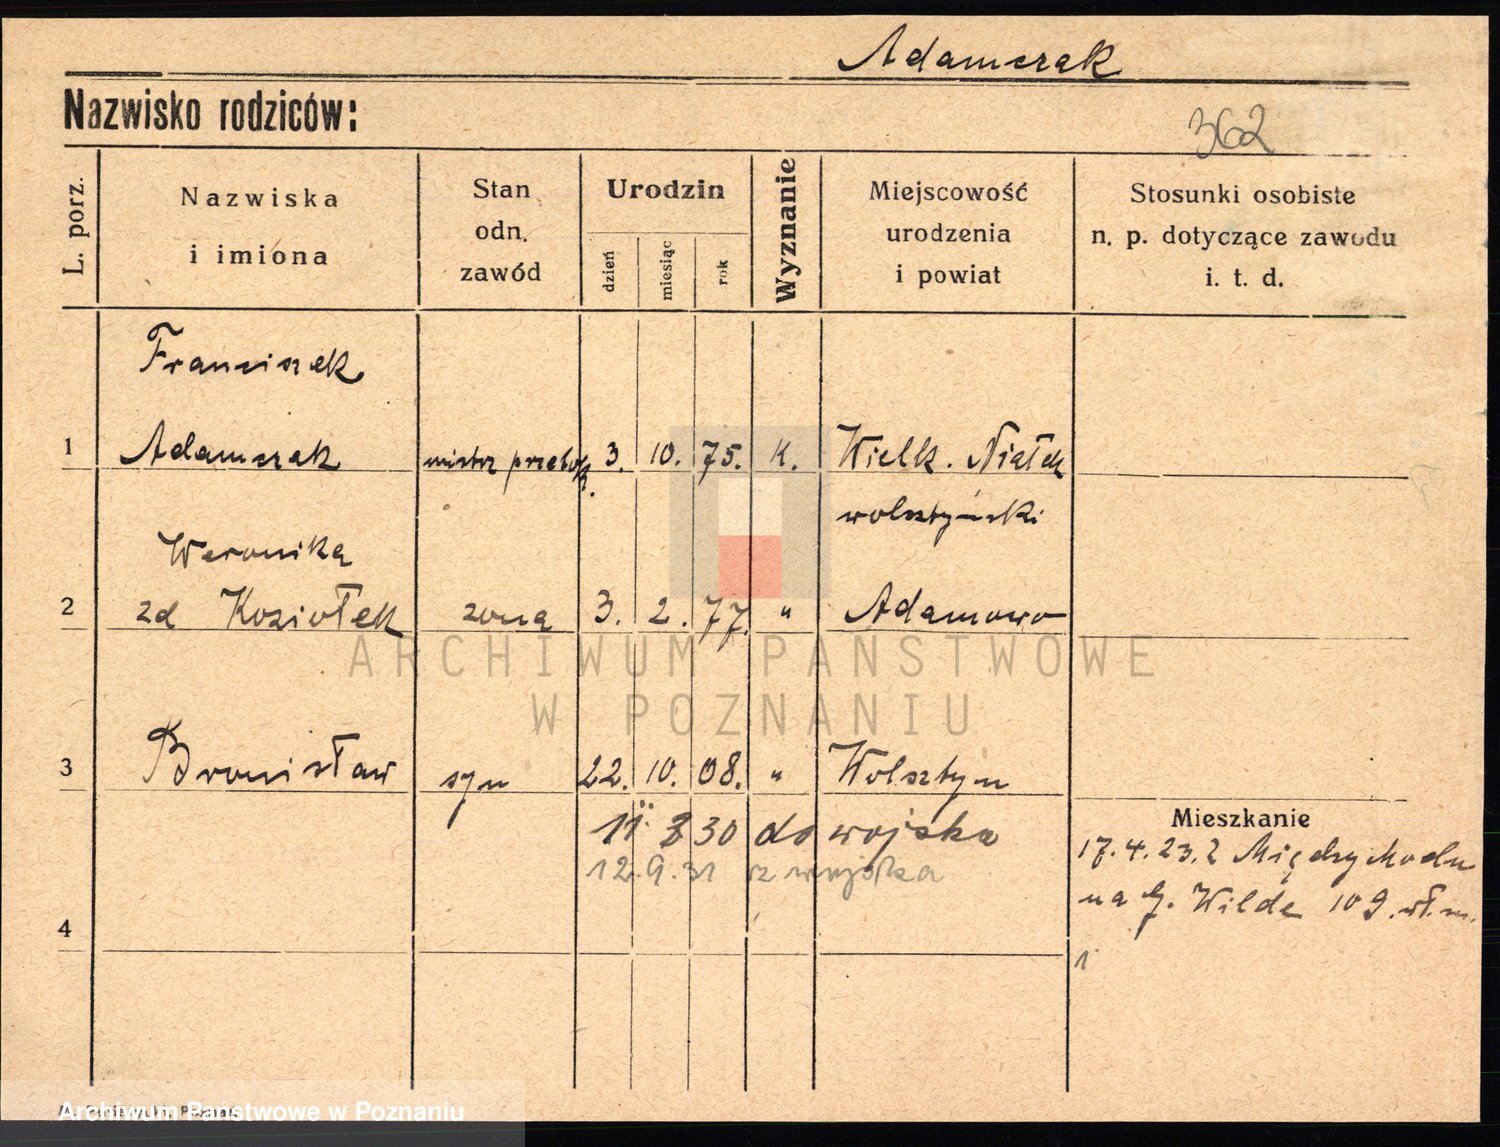 Adamczak
Nazwisko rodziców:
362
L. porz.
Nazwiska
i imiona
Stan
odn.
zawód
Urodzin
dzień
miesiąc
rok
Wyznanie
Miejscowość
urodzenia
i powiat
Stosunki osobiste
n. p. dotyczące zawodu
i. t. d.
Franciszek
1 Adamczak mistrz 3. 10. 75. K. Wielk. Niałek
wolsztyński
Weronika
2 zd Koziołek żona 3. 2. 77. " Adamowo
ARCHIWUM PAŃSTWOWE
W POZNANIU
3 Bronisław syn 22. 10. 08. " Wolsztyn
Mieszkanie
30 do wojska
17.4.23. z Międzychodu
12.9.31 z wojska
na G. Wilde 109.
4
1
Archiwum Państwowe w Poznaniu